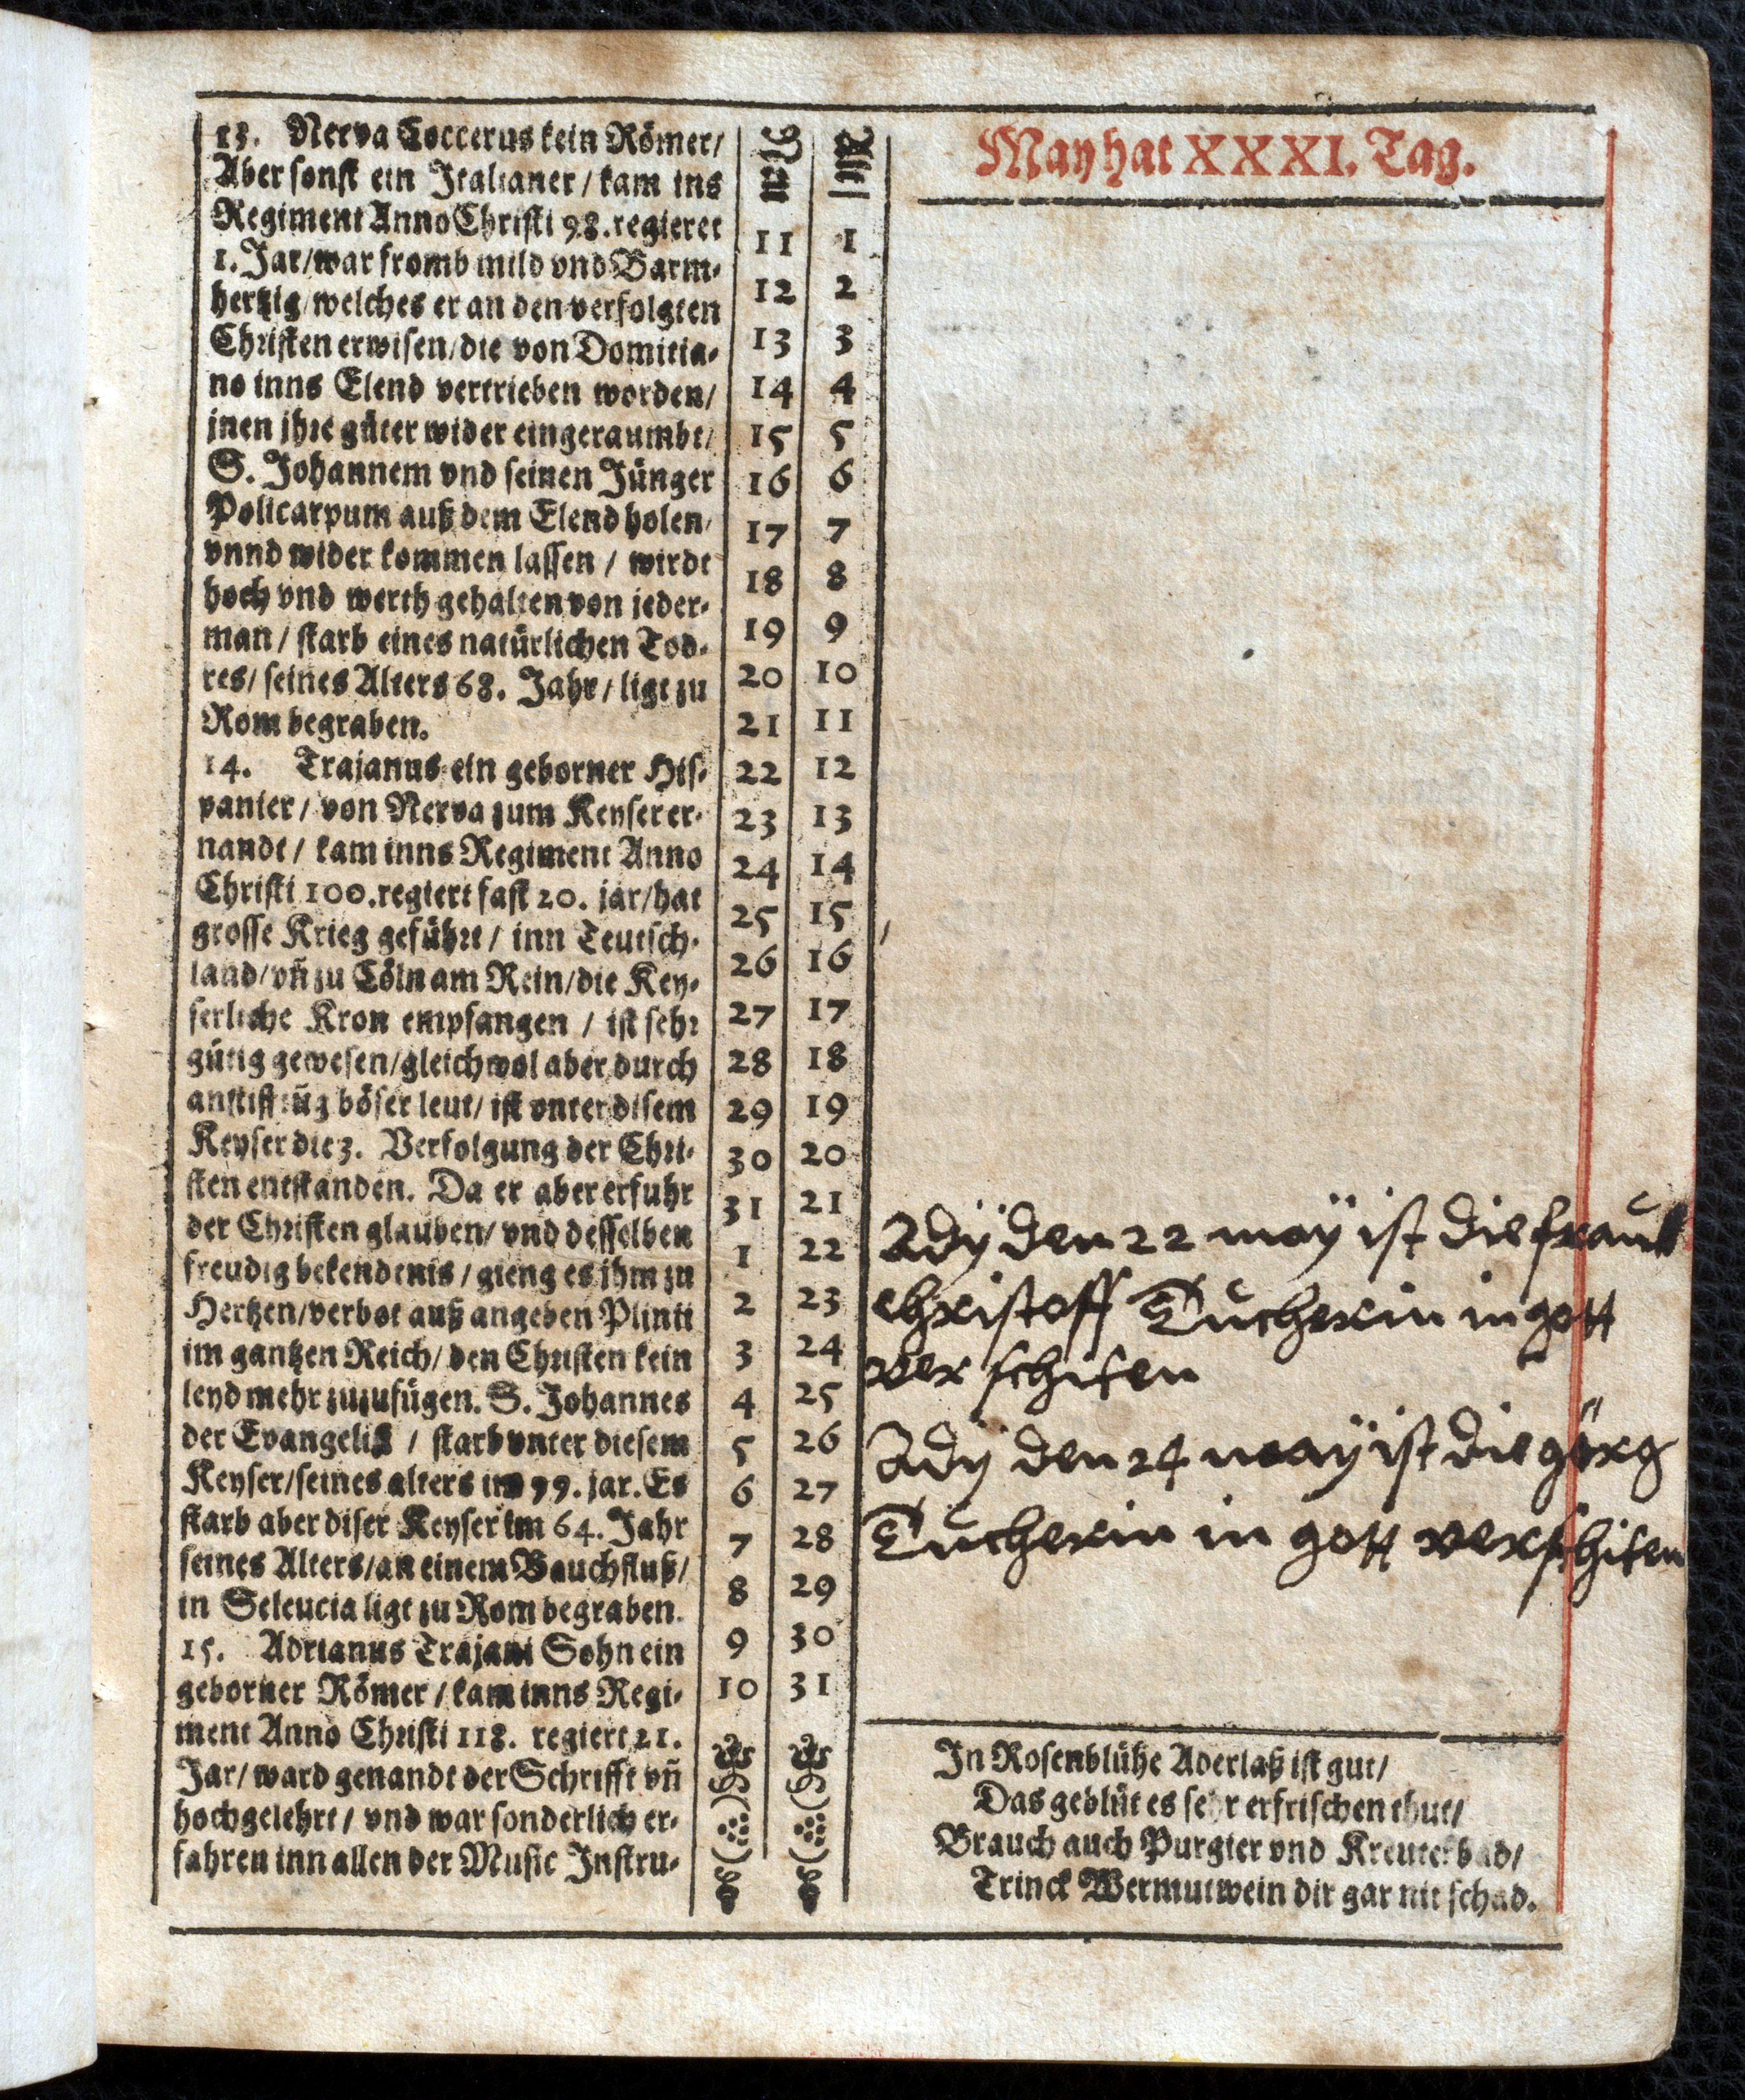 13. Nerva Coccerus kein Römer/
Aber sonst ein Italianer / kam ins
Regiment Anno Christi 98. regieret
1. Jar/war fromb mild vnd Barm-
hertzig/welches er an den verfolgten
Christen erwisen/die von Domitia-
no inns Elend vertrieben worden/
jnen jhre güter wider eingeraumbt/
S. Johannem vnd seinen Jünger
Policarpum auß dem Elend holen/
vnnd wider kommen lassen / wirdt
hoch vnd werth gehalten von jeder-
man / starb eines natürlichen Tod-
res/ seines Alters 68. Jahr / ligt zu
Rom begraben.
14. Trajanus ein geborner His-
panier / von Nerva zum Keyser er-
nandt / kam inns Regiment Anno
Christi 100. regiert fast 20. jar/hat
grosse Krieg geführt / inn Teutsch-
land/vñ zu Cöln am Rein/die Key-
serliche Kron empfangen / ist sehr
gütig gewesen/gleichwol aber durch
anstifftũg böser leut/ ist vnter disem
Keyser die 3. Verfolgung der Chri-
sten entstanden. Da er aber erfuhr
der Christen glauben/ vnd desselben
freudig bekendtnis / gieng es jhm zu
Hertzen/verbot auß angeben Plinii
im gantzen Reich/ den Christen kein
leyd mehr zuzufügen. S. Johannes
der Evangelist / starb vnter diesem
Keyser/seines alters im 99. jar. Es
starb aber diser Keyser im 64. Jahr
seines Alters/an einem Bauchfluß/
in Seleucia ligt zu Rom begraben.
15. Adrianus Trajani Sohn ein
geborner Römer / kam inns Regi-
ment Anno Christi 118. regiert 21.
Jar/ ward genandt der Schrifft vñ
hochgelehrt / vnd war sonderlich er-
fahren inn allen der Music Instru-
New Alt
11 1
12 2
13 3
14 4
15 5
16 6
17 7
18 8
19 9
20 10
21 11
22 12
23 13
24 14
25 15
26 16
27 17
28 18
29 19
30 20
31 21
1 22
2 23
3 24
4 25
5 26
6 27
7 28
8 29
9 30
10 31
May hat XXXI. Tag.
Ady den 22 may ist die frau
christoff Tucherin in gott
ver schiten
Ady den 24 may ist die görg
Tucherin in gott verschiten
In Rosenblühe Aderlaß ist gut/
Das geblüt es sehr erfrischen thut/
Brauch auch Purgier vnd Kreuterbad/
Trinck Wermutwein dir gar nit schad.